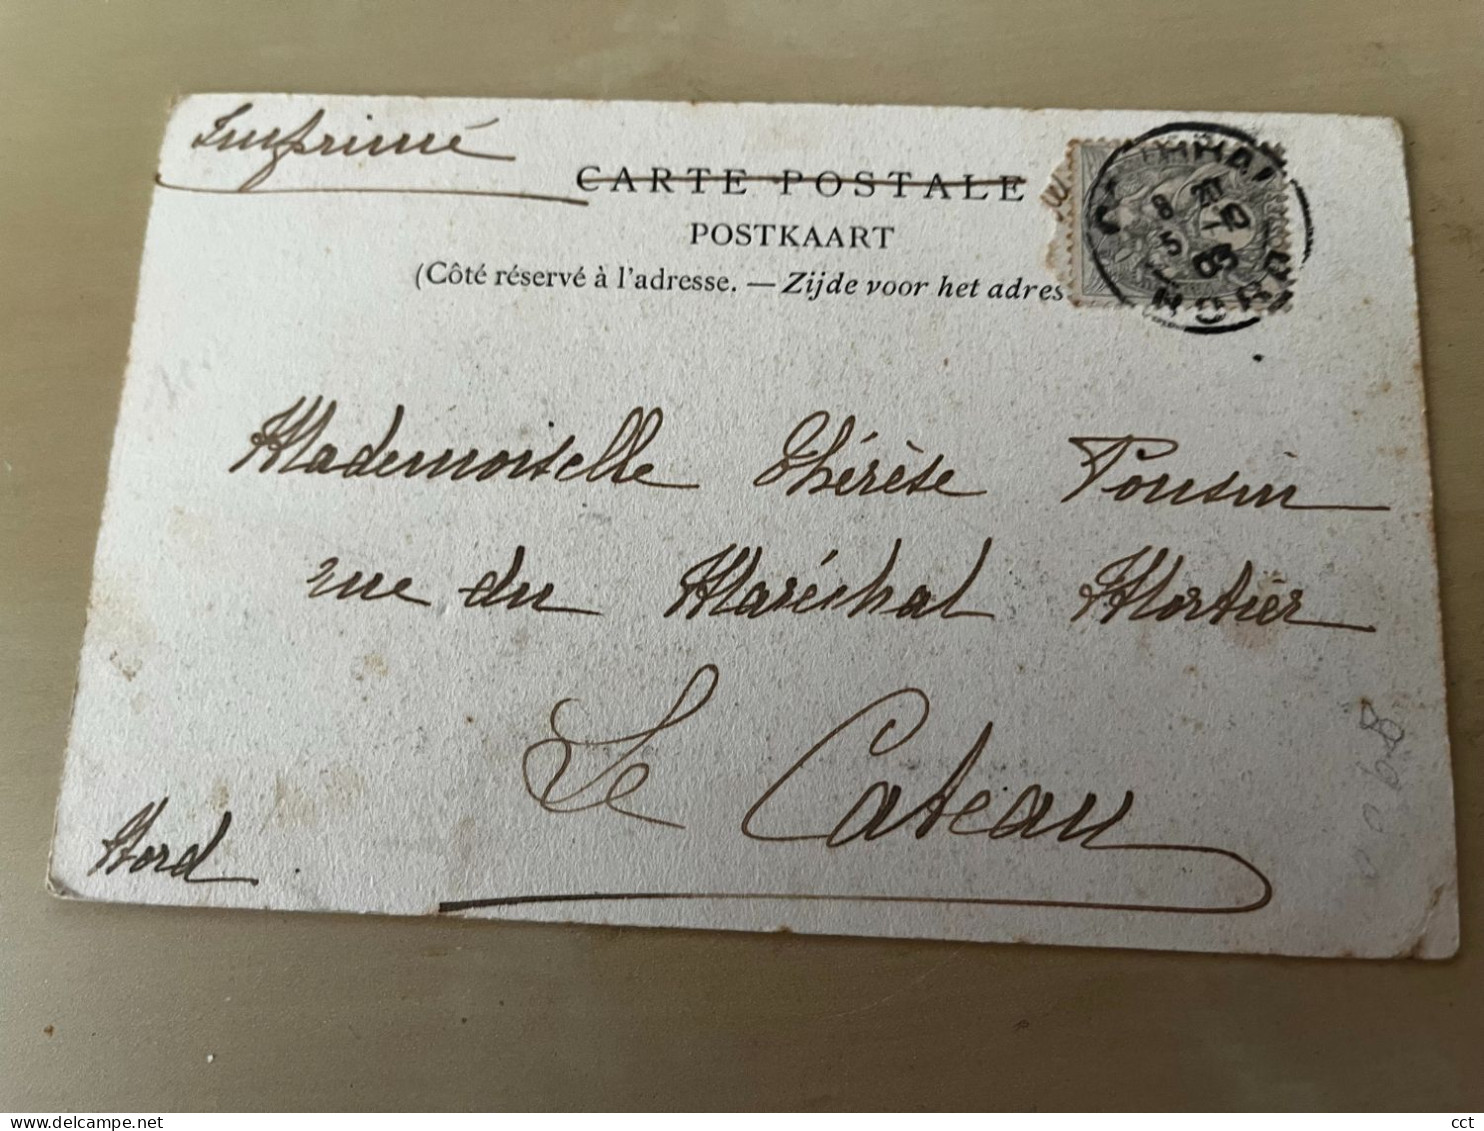 Imprimé
CARTE POSTALE
POSTKAART
(Côté réservé à l'adresse. — Zijde voor het adres
NORD
Mademoiselle Thérèse Pousin
rue du Maréchal Mortier
Le Cateau
Nord
cct